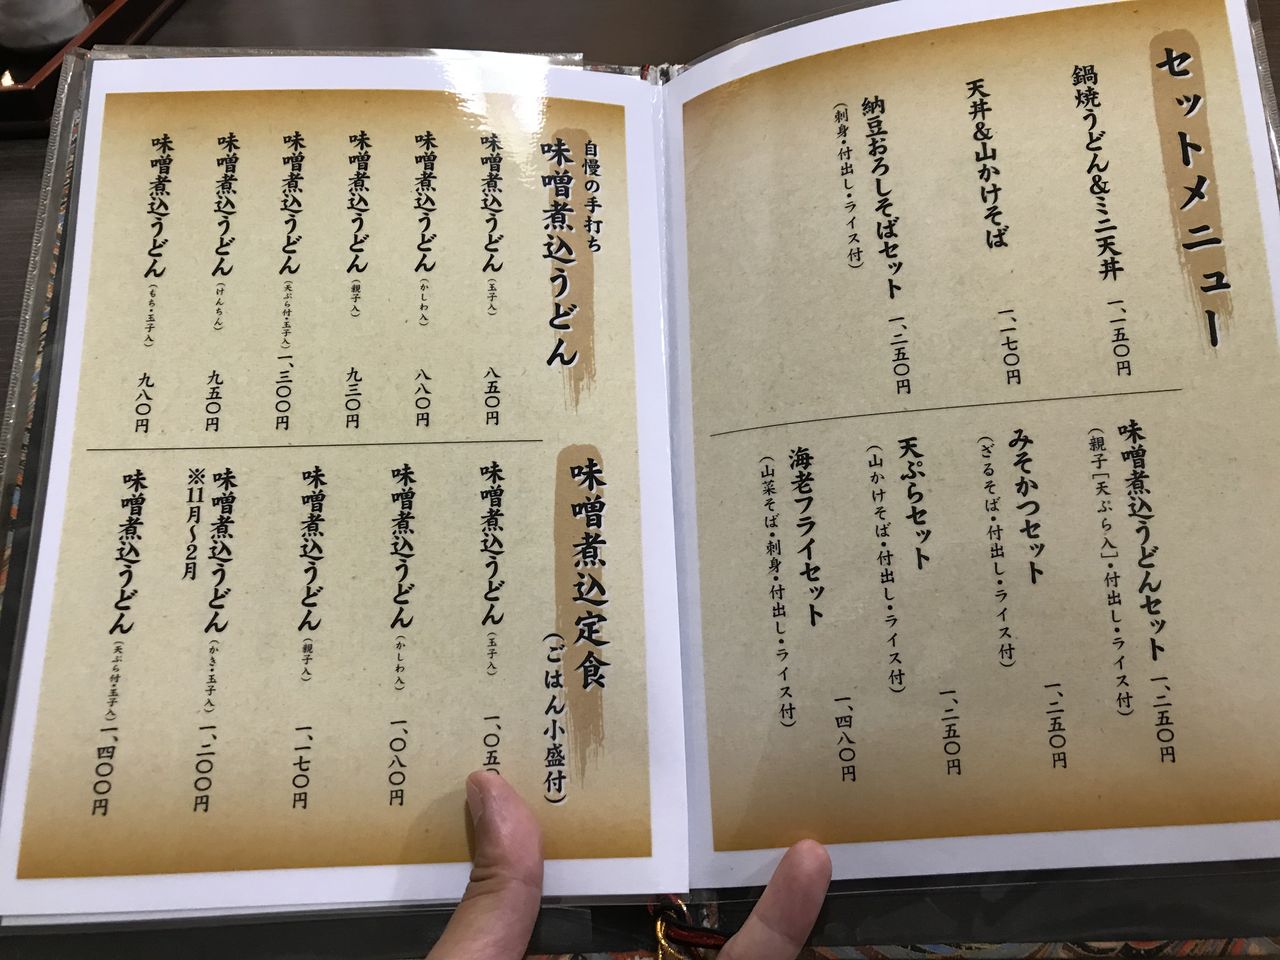 セットメニュー
鍋焼うどん&ミニ天丼 一、一五〇円
天丼&山かけそば 一、一七〇円
納豆おろしそばセット 一、二五〇円
(刺身・付出し・ライス付)
味噌煮込うどんセット 一、二五〇円
(親子[天ぷら入]・付出し・ライス付)
みそかつセット 一、二五〇円
(ざるそば・付出し・ライス付)
天ぷらセット 一、二五〇円
(山かけそば・付出し・ライス付)
海老フライセット 一、四八〇円
(山菜そば・刺身・付出し・ライス付)
自慢の手打ち
味噌煮込うどん
味噌煮込うどん(玉子入) 八五〇円
味噌煮込うどん(かしわ入) 八八〇円
味噌煮込うどん(親子入) 九三〇円
味噌煮込うどん(天ぷら付・玉子入) 一、三〇〇円
味噌煮込うどん(けんちん) 九五〇円
味噌煮込うどん(もち・玉子入) 九八〇円
味噌煮込定食
(ごはん小盛付)
味噌煮込うどん(玉子入) 一、〇五〇
味噌煮込うどん(かしわ入) 一、〇八〇円
味噌煮込うどん(親子入) 一、一七〇円
味噌煮込うどん(かき・玉子入) 一、二〇〇円
※11月～2月
味噌煮込うどん(天ぷら付・玉子入) 一、四〇〇円